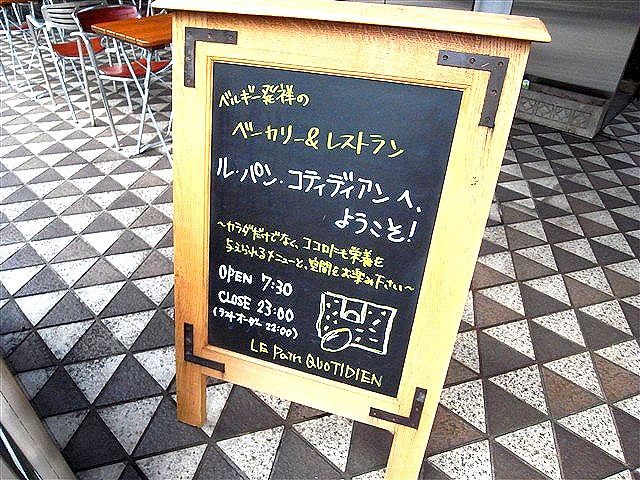 ベルギー発祥の
ベーカリー&レストラン
ル・パン・コティディアンへ、
ようこそ!
～カラダだけでなく、ココロにも栄養を
与えられるメニューと、空間をお楽み下さい～
OPEN 7:30
CLOSE 23:00
(ラストオーダー 22:00)
LE Pain QUOTIDIEN